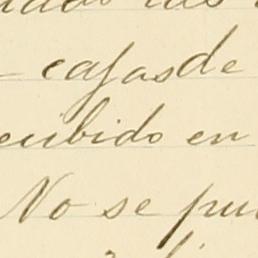 cajas de
ecibido en
No se pu